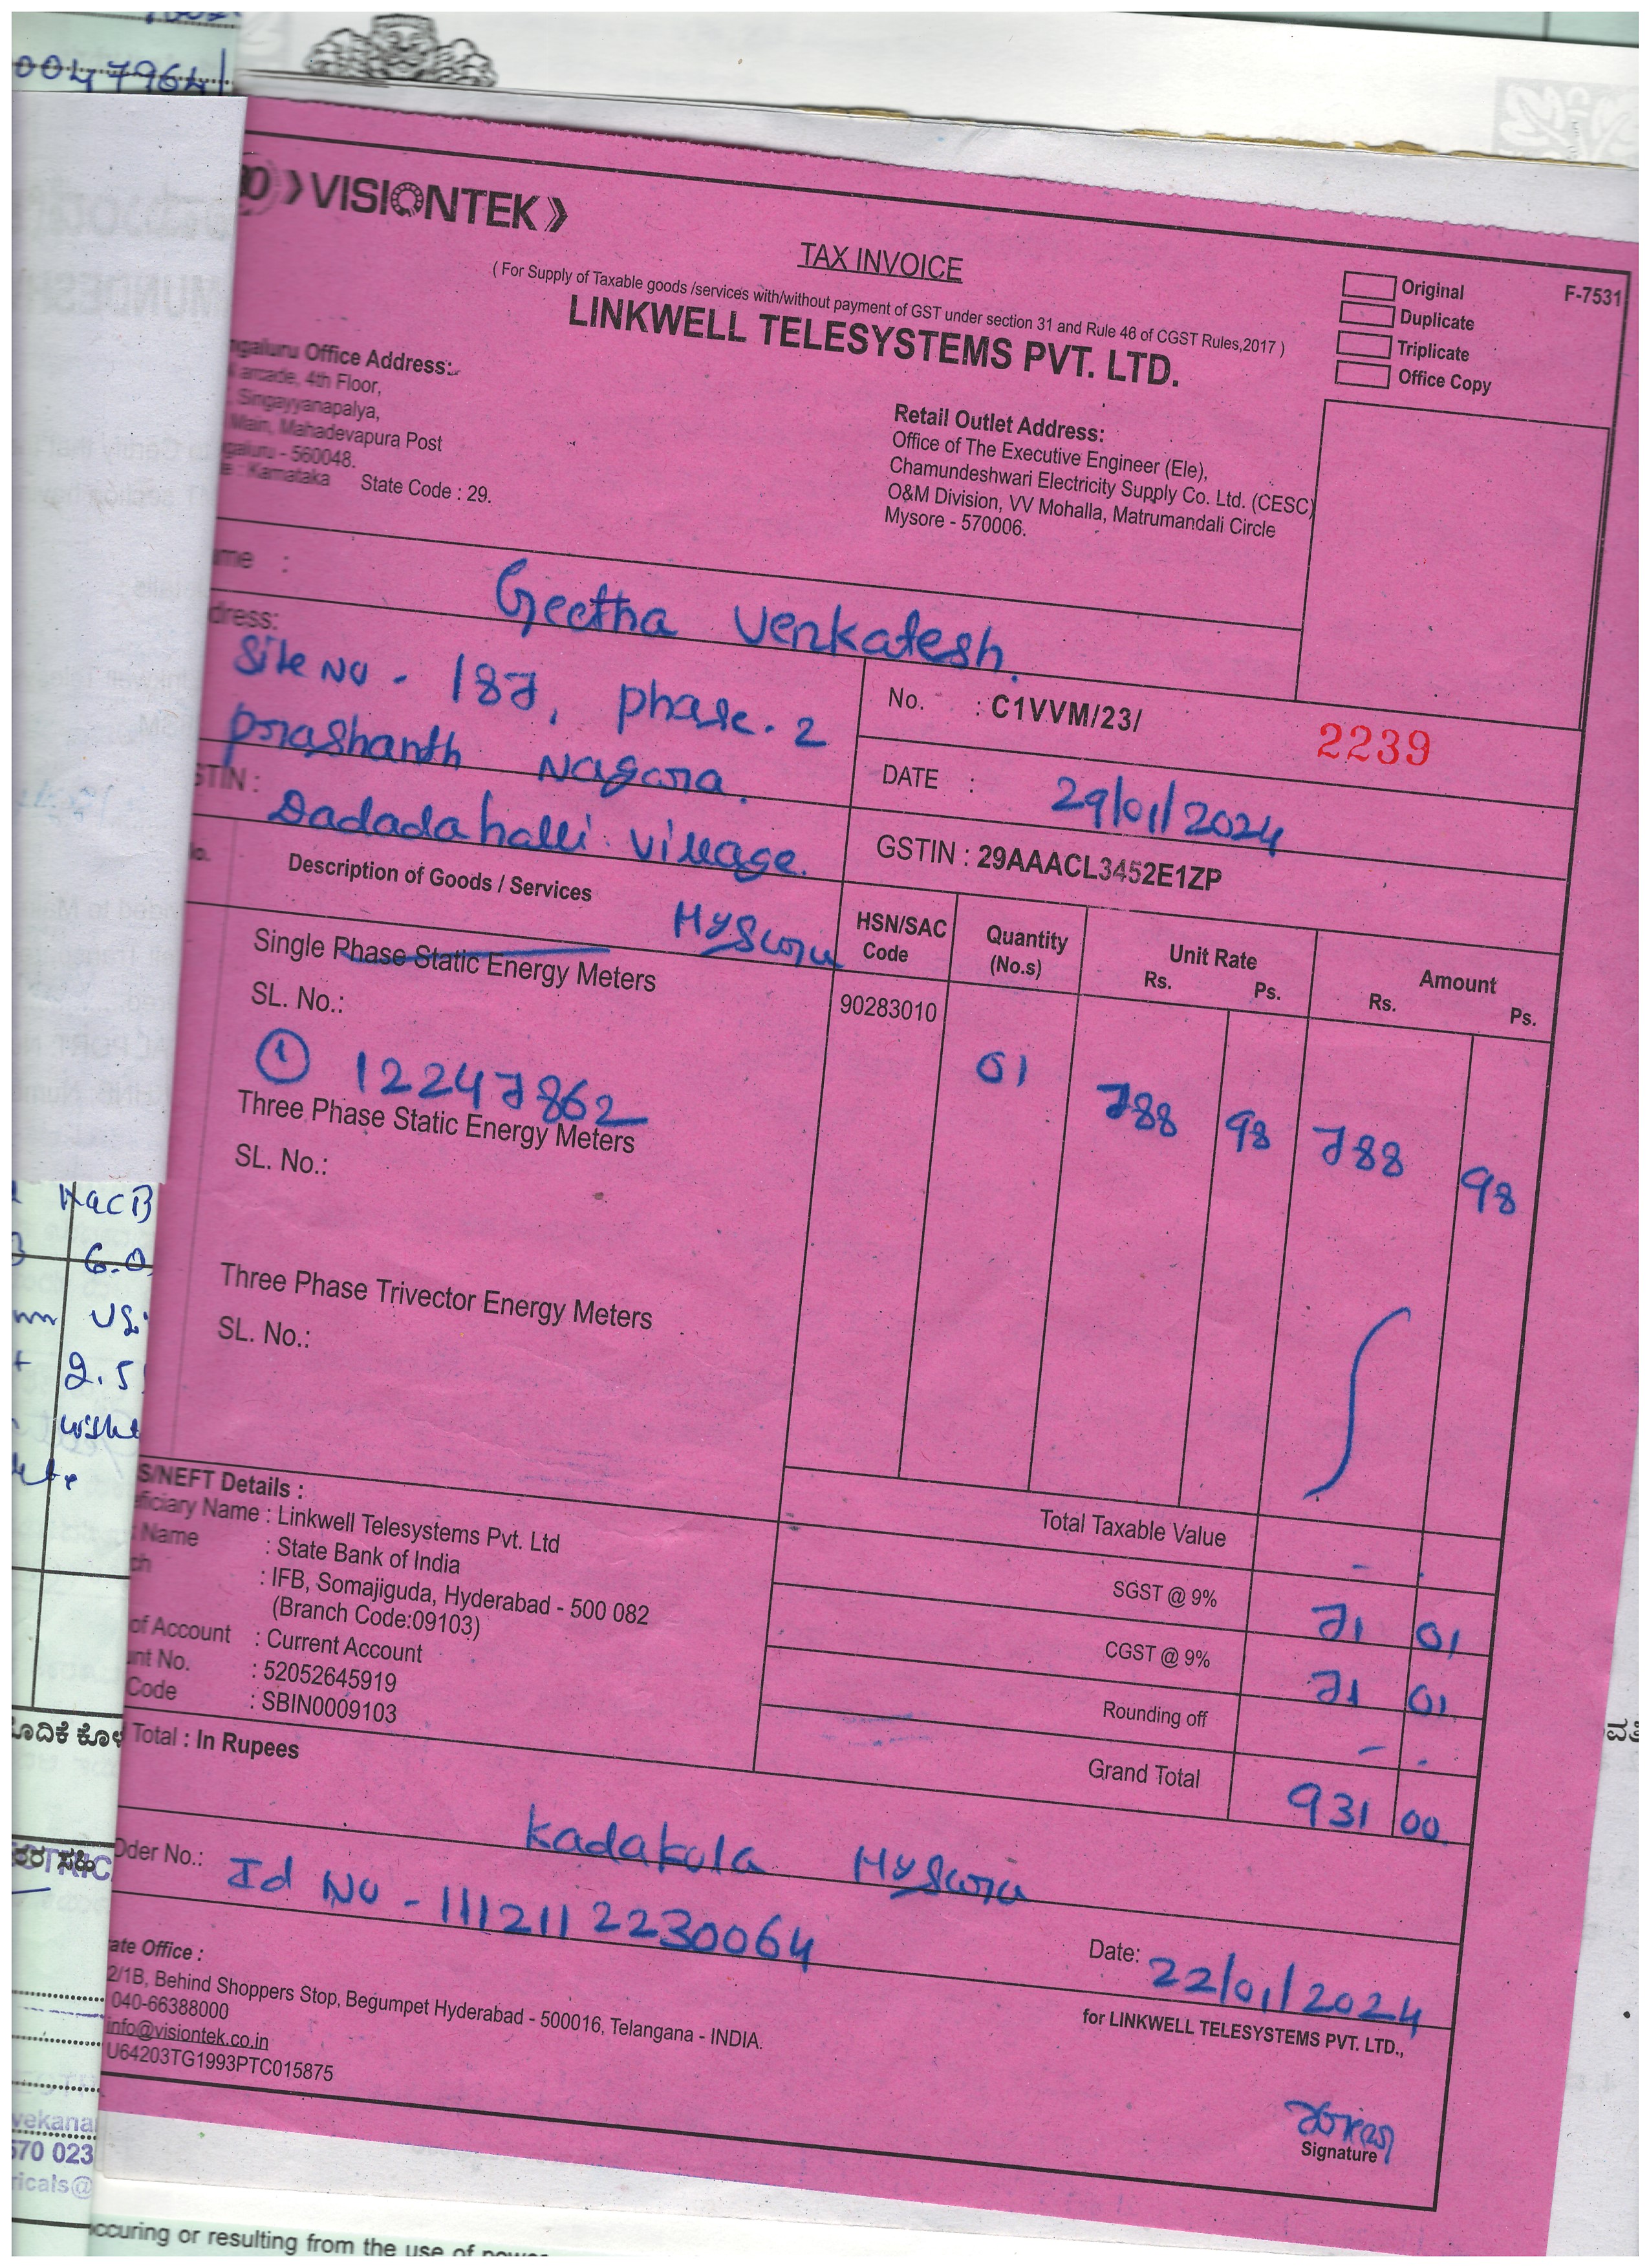 0047964/
VISIONTEK
TAX INVOICE
( For Supply of Taxable goods /services with/without payment of GST under section 31 and Rule 46 of CGST Rules,2017 )
LINKWELL TELESYSTEMS PVT. LTD.
Original
Duplicate
Triplicate
Office Copy
F-7531
ngaluru Office Address:
arcade, 4th Floor,
Singayyanapalya,
Main, Mahadevapura Post
galuru - 560048.
e : Karnataka State Code : 29.
Retail Outlet Address:
Office of The Executive Engineer (Ele),
Chamundeshwari Electricity Supply Co. Ltd. (CESC)
O&M Division, VV Mohalla, Matrumandali Circle
Mysore - 570006.
me : Geetha Venkatesh
dress:
Site No - 187, phase - 2
prashanth Nagara.
STIN : Dadadahalli Village.
Mysuru
No. : C1VVM/23/ 2239
DATE : 29/01/2024
GSTIN : 29AAACL3452E1ZP
o. Description of Goods / Services HSN/SAC Code Quantity (No.s) Unit Rate Rs. Ps. Amount Rs. Ps.
Single Phase Static Energy Meters 90283010
SL. No.:
① 12247862 01 788 98 788 98
Three Phase Static Energy Meters
SL. No.:
Three Phase Trivector Energy Meters
SL. No.:
S/NEFT Details :
eficiary Name : Linkwell Telesystems Pvt. Ltd
Name : State Bank of India
ch : IFB, Somajiguda, Hyderabad - 500 082
(Branch Code:09103)
of Account : Current Account
unt No. : 52052645919
Code : SBIN0009103
Total Taxable Value - .
SGST @ 9% 71 01
CGST @ 9% 71 01
Rounding off - .
Grand Total 931 00
Total : In Rupees
Kadakola Mysuru
Oder No.: Id No - 111211 2230064
Date: 22/01/2024
ate Office :
2/1B, Behind Shoppers Stop, Begumpet Hyderabad - 500016, Telangana - INDIA.
040-66388000
info@visiontek.co.in
U64203TG1993PTC015875
for LINKWELL TELESYSTEMS PVT. LTD.,
Signature
HacB
6.0
2.5
ೂದಿಕೆ ಕೊಳ
TRIC
vekana
570 023
ricals@
occuring or resulting from the use of power